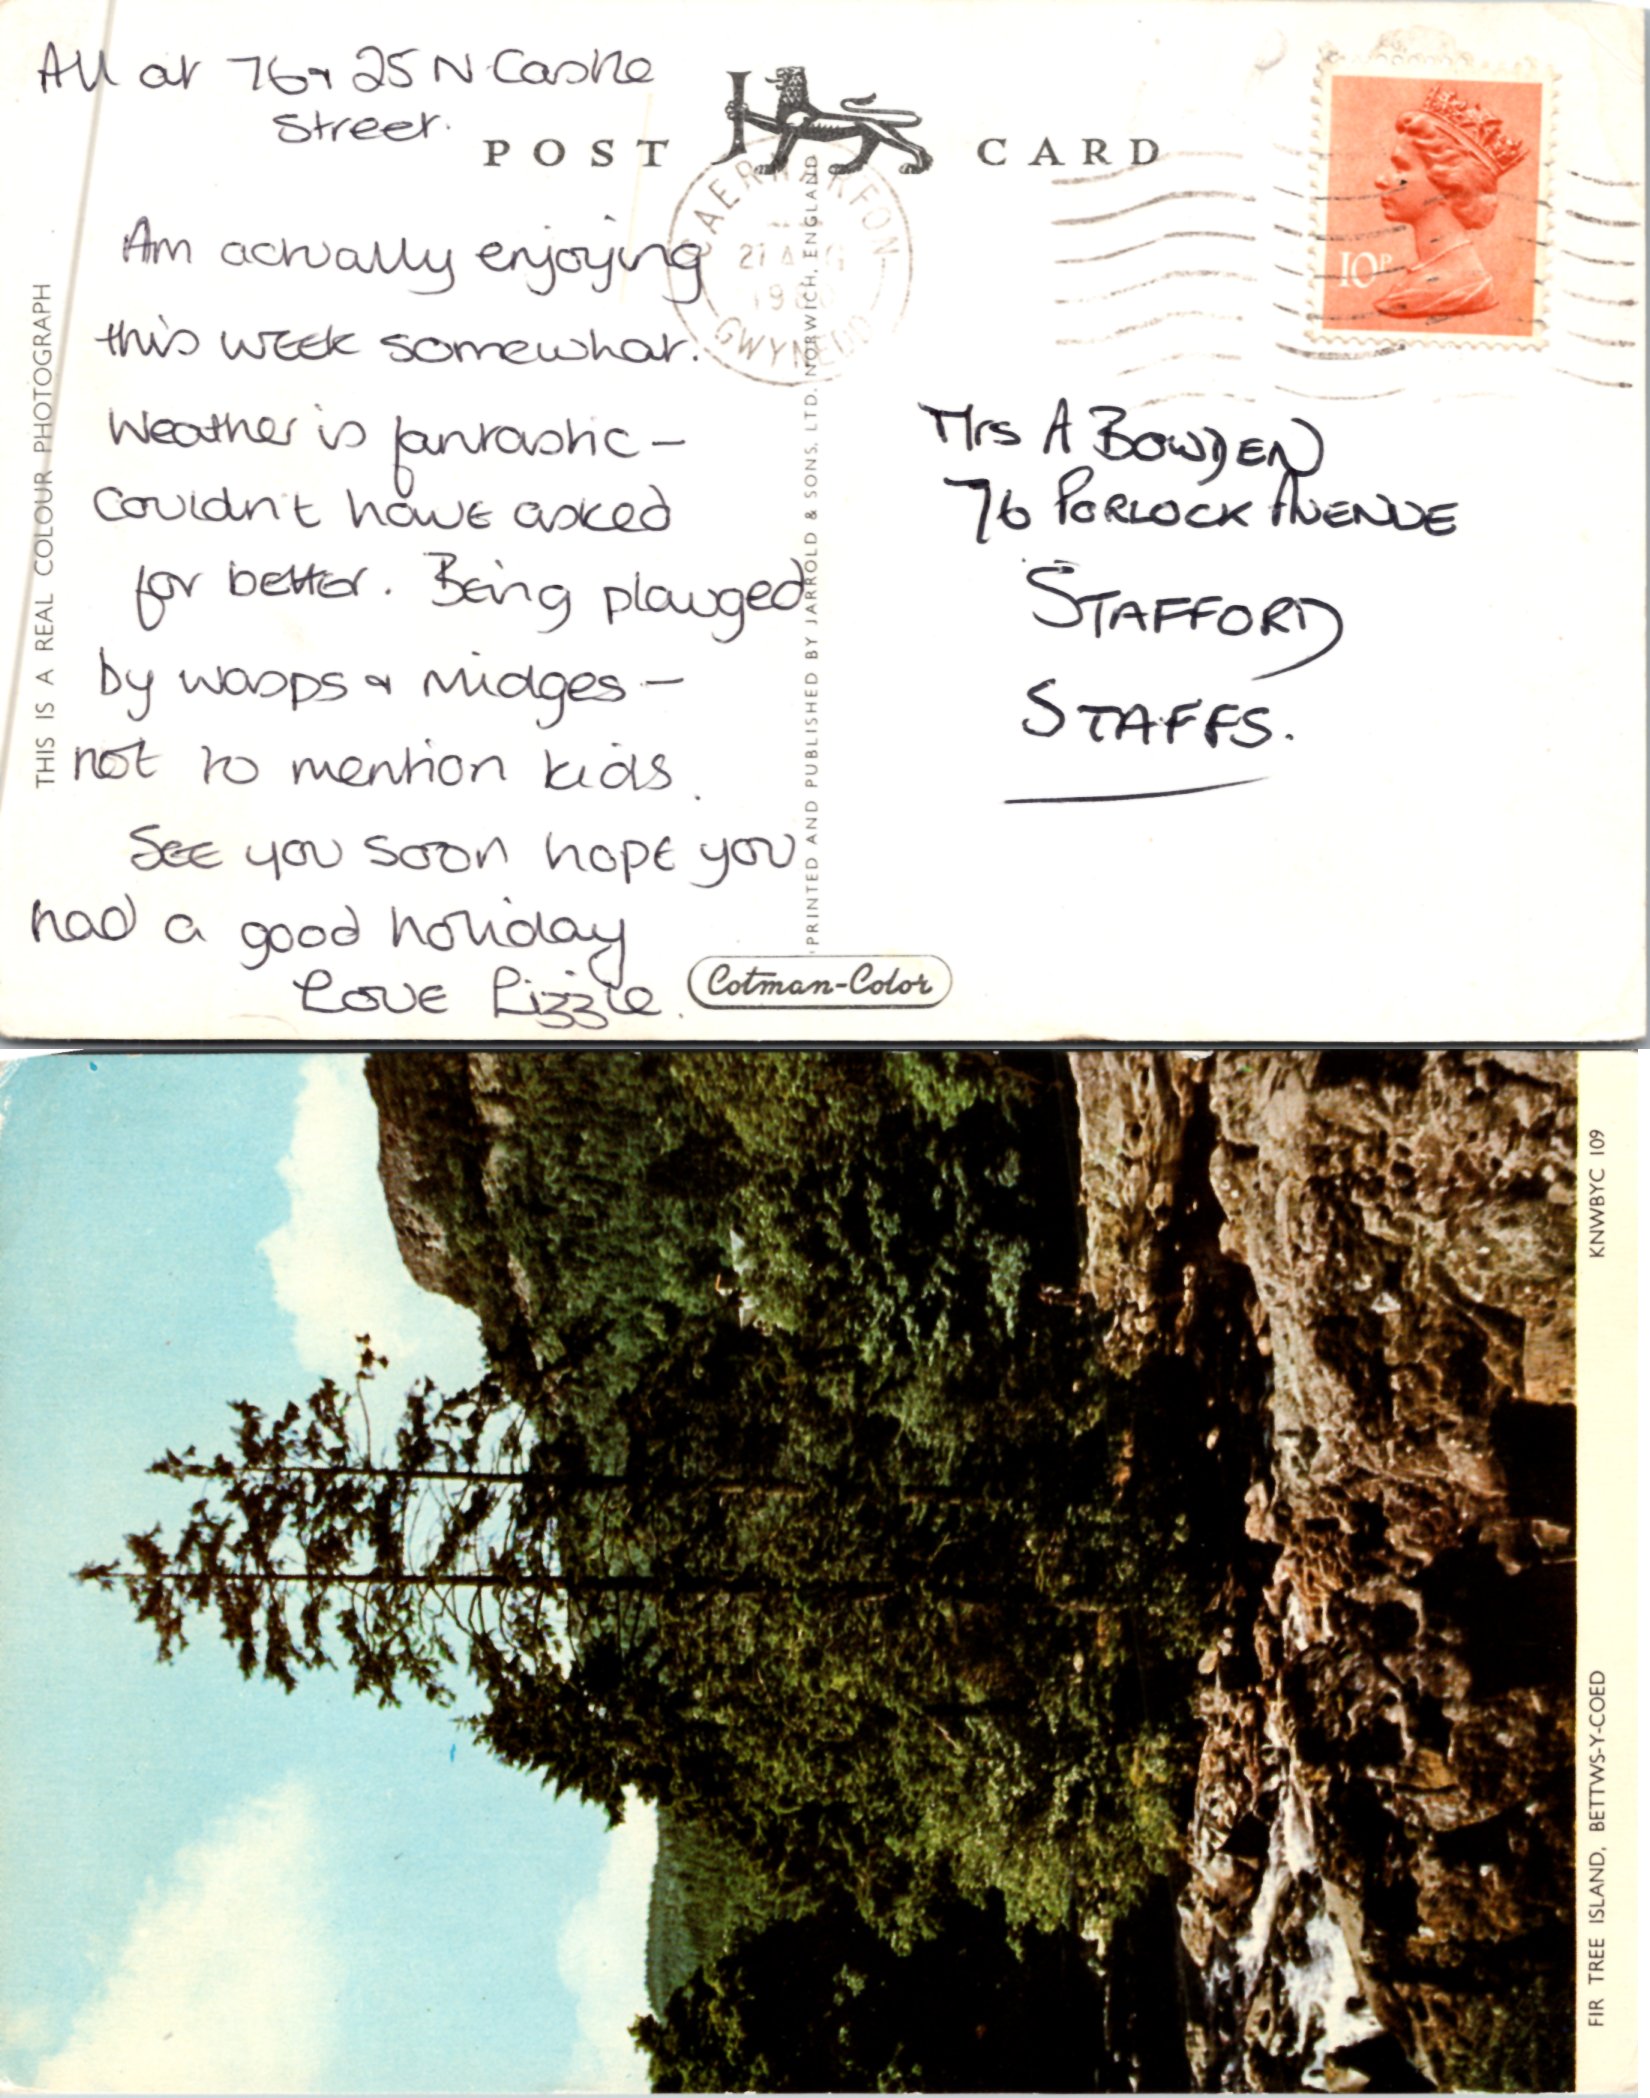 All at 76 & 25 N Castle
Street.
POST CARD
Am actually enjoying
this week somewhat.
Weather is fantastic –
Couldn't have asked
for better. Being plauged
by wasps & midges –
not to mention kids.
See you soon hope you
had a good holiday
Love Lizzie.
THIS IS A REAL COLOUR PHOTOGRAPH
PRINTED AND PUBLISHED BY JARROLD & SONS, LTD. NORWICH, ENGLAND
Cotman-Color
CAERNARFON
27 AUG
GWYNEDD
10P
Mrs A BOWDEN
76 PORLOCK AVENUE
STAFFORD
STAFFS.
FIR TREE ISLAND, BETTWS-Y-COED
KNWBYC 109